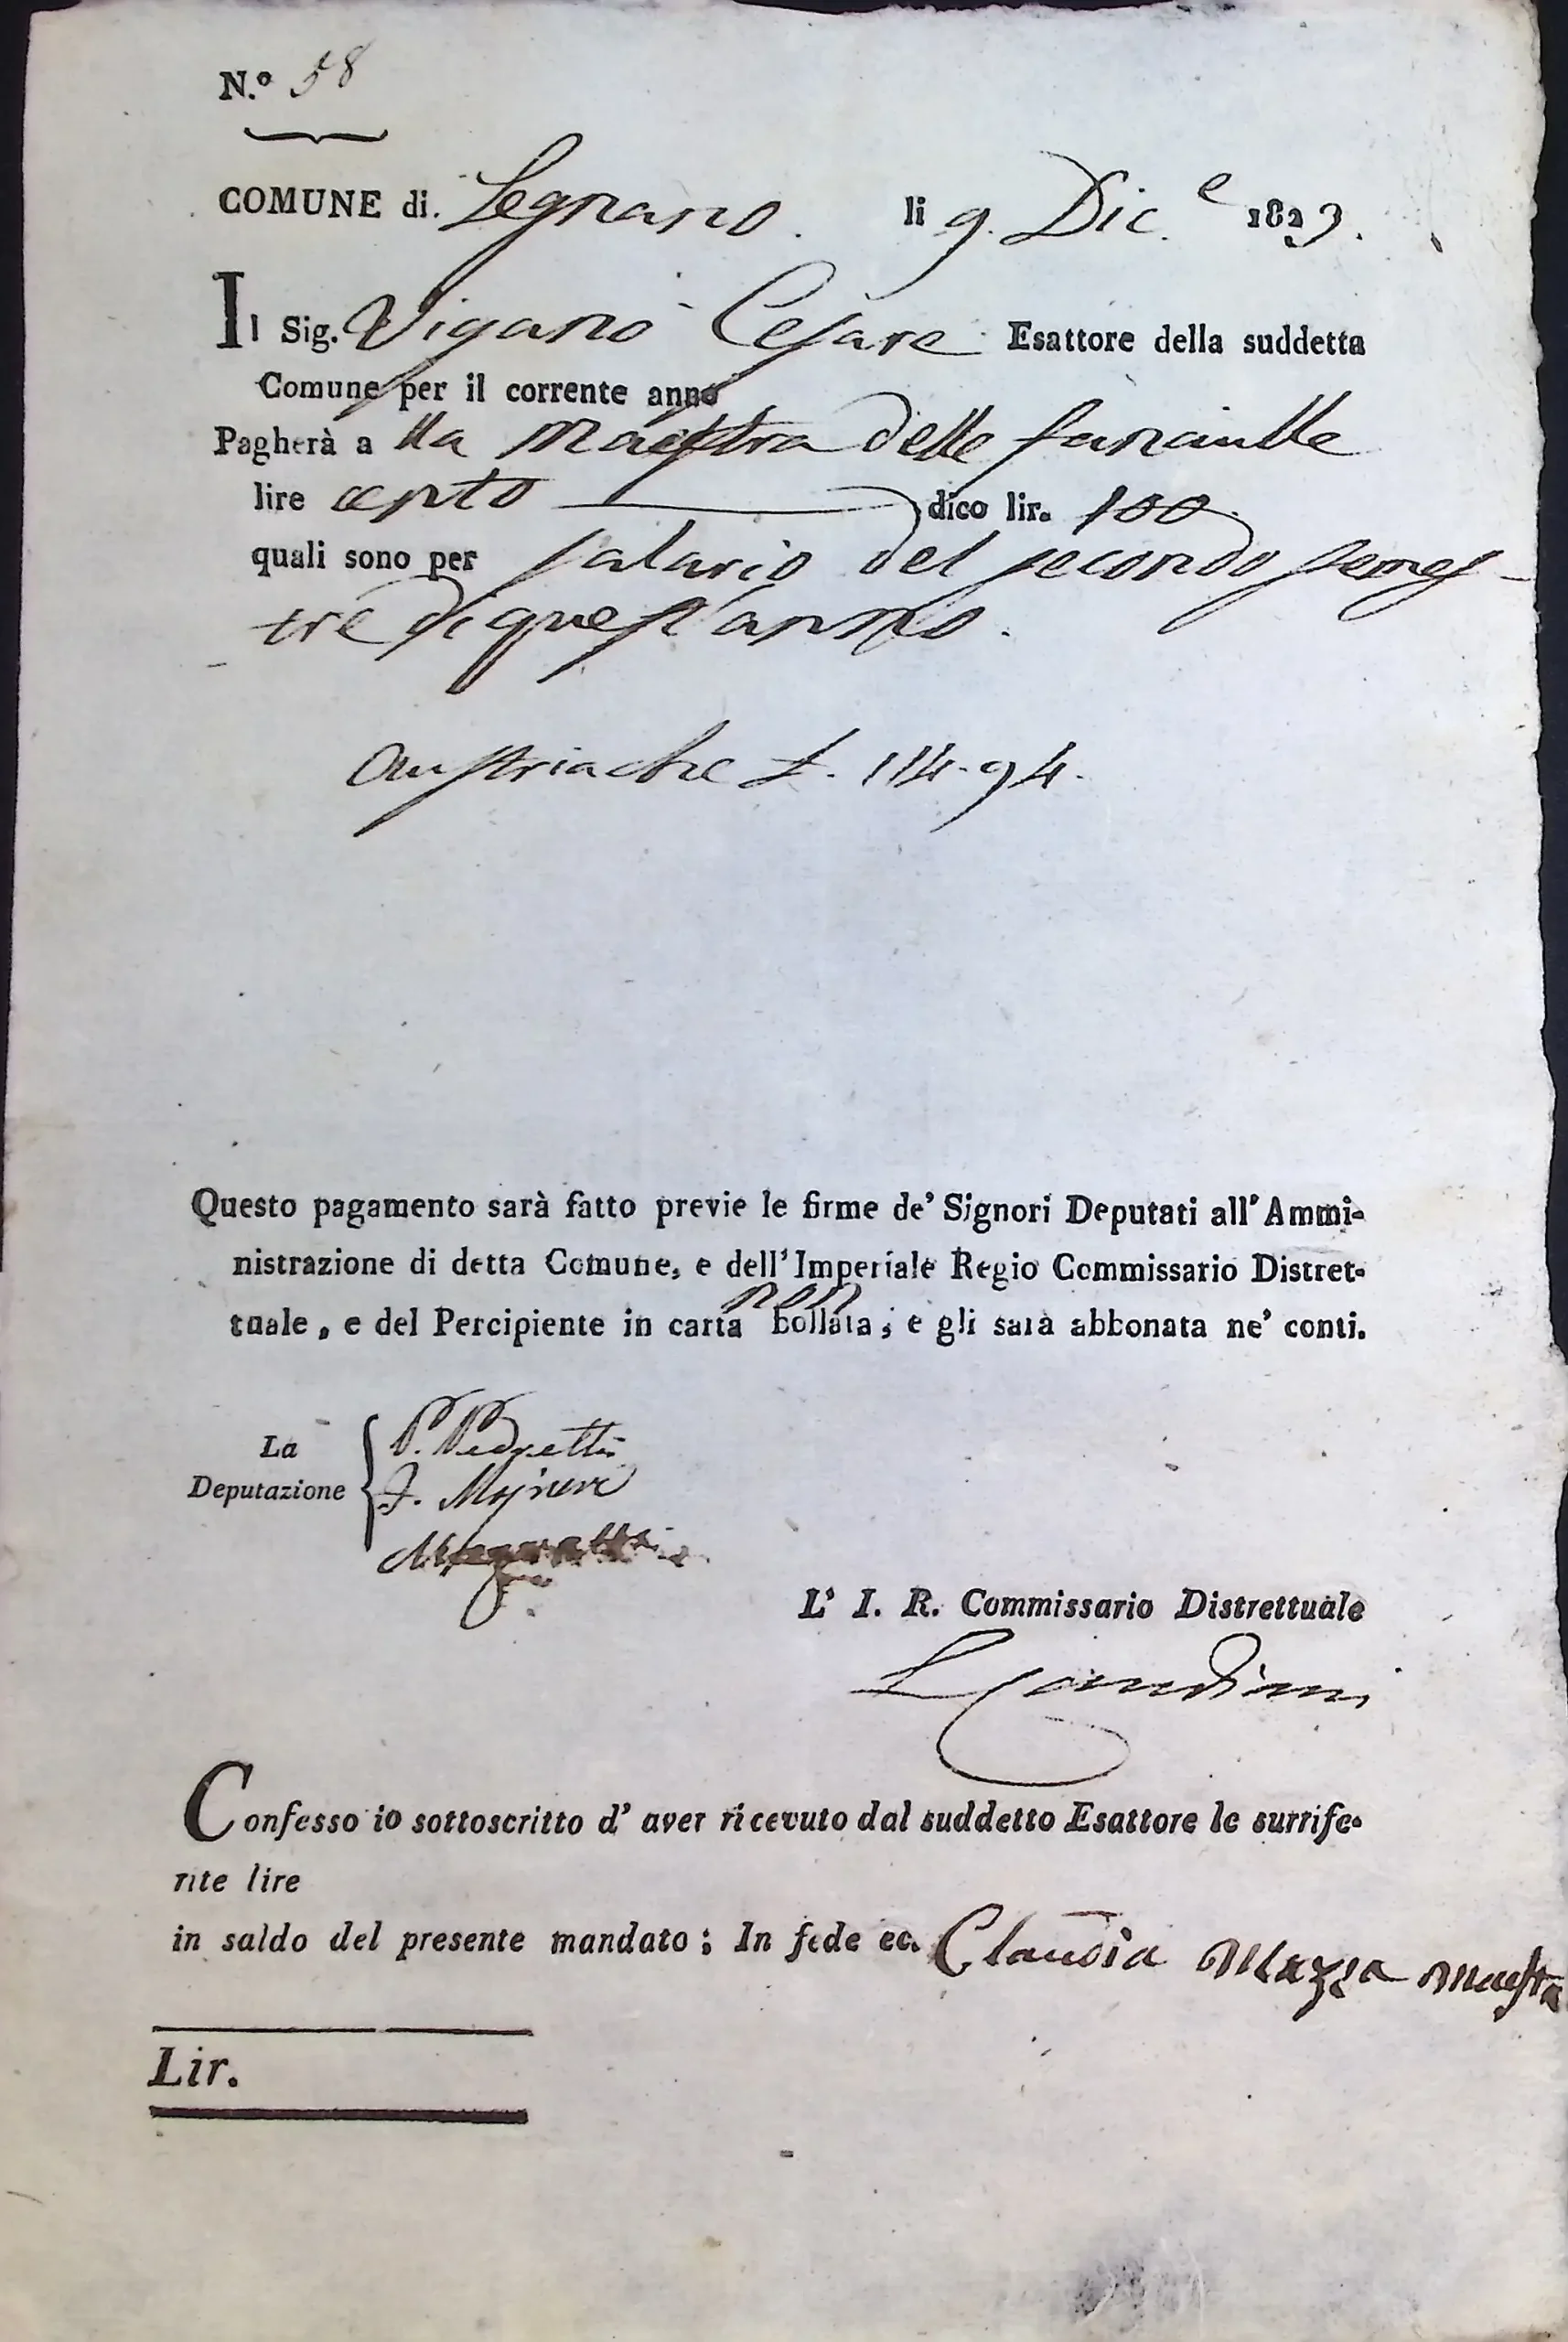 N.º 58
COMUNE di Legnano. li 9. Dic.e 1823.
Il Sig. Viganò Cesare Esattore della suddetta
Comune per il corrente anno
Pagherà a lla Maestra delle fanciulle
lire cento dico lir. 100.
quali sono per salario del secondo semes-
tre di quest'anno.
Austriache £. 114.94.
Questo pagamento sarà fatto previe le firme de' Signori Deputati all'Ammi-
nistrazione di detta Comune, e dell'Imperiale Regio Commissario Distret-
tuale, e del Percipiente in carta non bollata; e gli sarà abbonata ne' conti.
La
Deputazione
P. Pedretti
L' I. R. Commissario Distrettuale
Confesso io sottoscritto d' aver ricevuto dal suddetto Esattore le surrife-
rite lire
in saldo del presente mandato; In fede ec. Claudia Mazza Maestra
Lir.